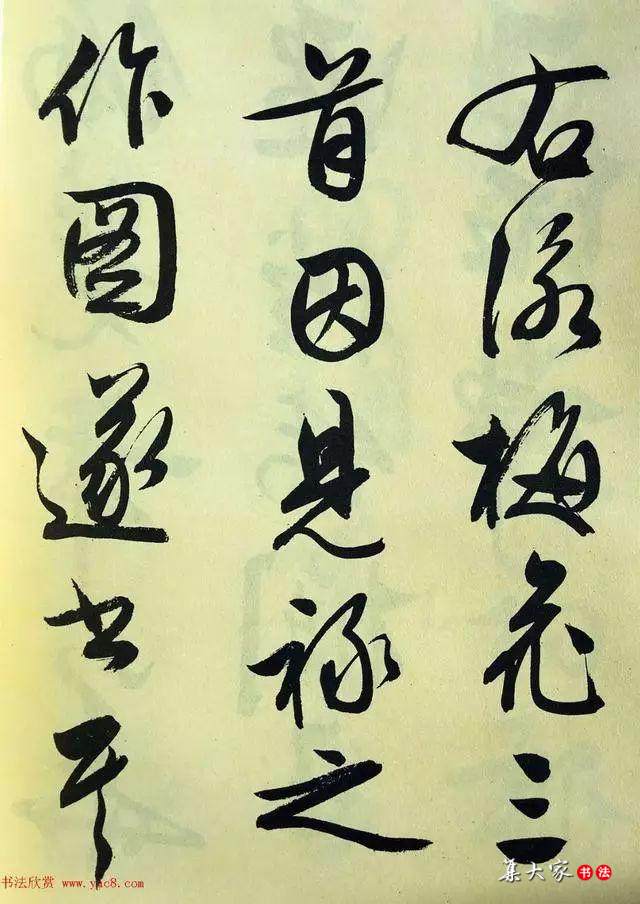 右詠梅花三
首因見祿之
作圖遂書其
书法欣赏 www.yac8.com
集大家 书法